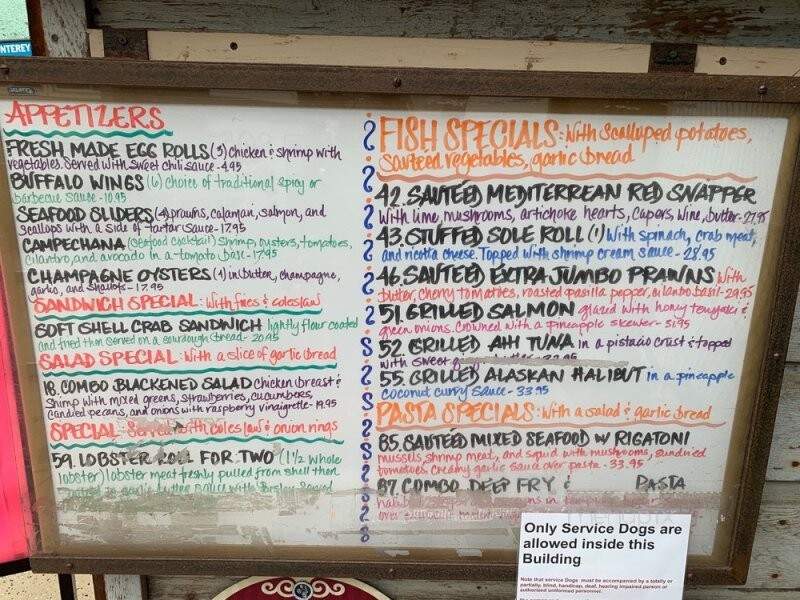 NTEREY
APPETIZERS
FRESH MADE EGG ROLLS (3) chicken & shrimp with
vegetables. Served with sweet chili sauce - 4.95
BUFFALO WINGS (6) choice of traditional spicy or
barbecue sauce - 10.95
SEAFOOD SLIDERS (4) prawns, calamari, salmon, and
scallops with a side of tartar sauce - 17.95
CAMPECHANA (seafood cocktail) shrimp, oysters, tomatoes,
cilantro, and avocado in a tomato base - 17.95
CHAMPAGNE OYSTERS (4) in butter, champagne,
garlic, and shallots - 17.95
SANDWICH SPECIAL: with fries & coleslaw
SOFT SHELL CRAB SANDWICH lightly flour coated
and fried then served on a sourdough bread - 20.95
SALAD SPECIAL: with a slice of garlic bread
18. COMBO BLACKENED SALAD chicken breast &
shrimp with mixed greens, strawberries, cucumbers,
candied pecans, and onions with raspberry vinaigrette - 19.95
SPECIAL: Served with coleslaw & onion rings
59. LOBSTER ROLL FOR TWO (1½ whole
lobster) lobster meat freshly pulled from shell then
garlic butter sauce with
FISH SPECIALS: with scalloped potatoes,
sauteed vegetables, garlic bread
42. SAUTEED MEDITERREAN RED SNAPPER
with lime, mushrooms, artichoke hearts, capers, wine, butter - 27.95
43. STUFFED SOLE ROLL (1) with spinach, crab meat,
and ricotta cheese. Topped with shrimp cream sauce - 28.95
46. SAUTEED EXTRA JUMBO PRAWNS with
butter, cherry tomatoes, roasted pasilla pepper, cilantro basil - 29.95
51. GRILLED SALMON glazed with honey teriyaki &
green onions. Crowned with a pineapple skewer - 31.95
52. GRILLED AHI TUNA in a pistacio crust & topped
with sweet
55. GRILLED ALASKAN HALIBUT in a pineapple
coconut curry sauce - 33.95
PASTA SPECIALS: with a salad & garlic bread
85. SAUTEED MIXED SEAFOOD W/ RIGATONI
mussels, shrimp meat, and squid with mushrooms, sundried
tomatoes creamy garlic sauce over pasta - 33.95
87. COMBO DEEP FRY & PASTA
Only Service Dogs are
allowed inside this
Building
Note that service Dogs must be accompanied by a totally or
partially, blind, handicap, deaf, hearing impaired person or
authorized uniformed personnel.